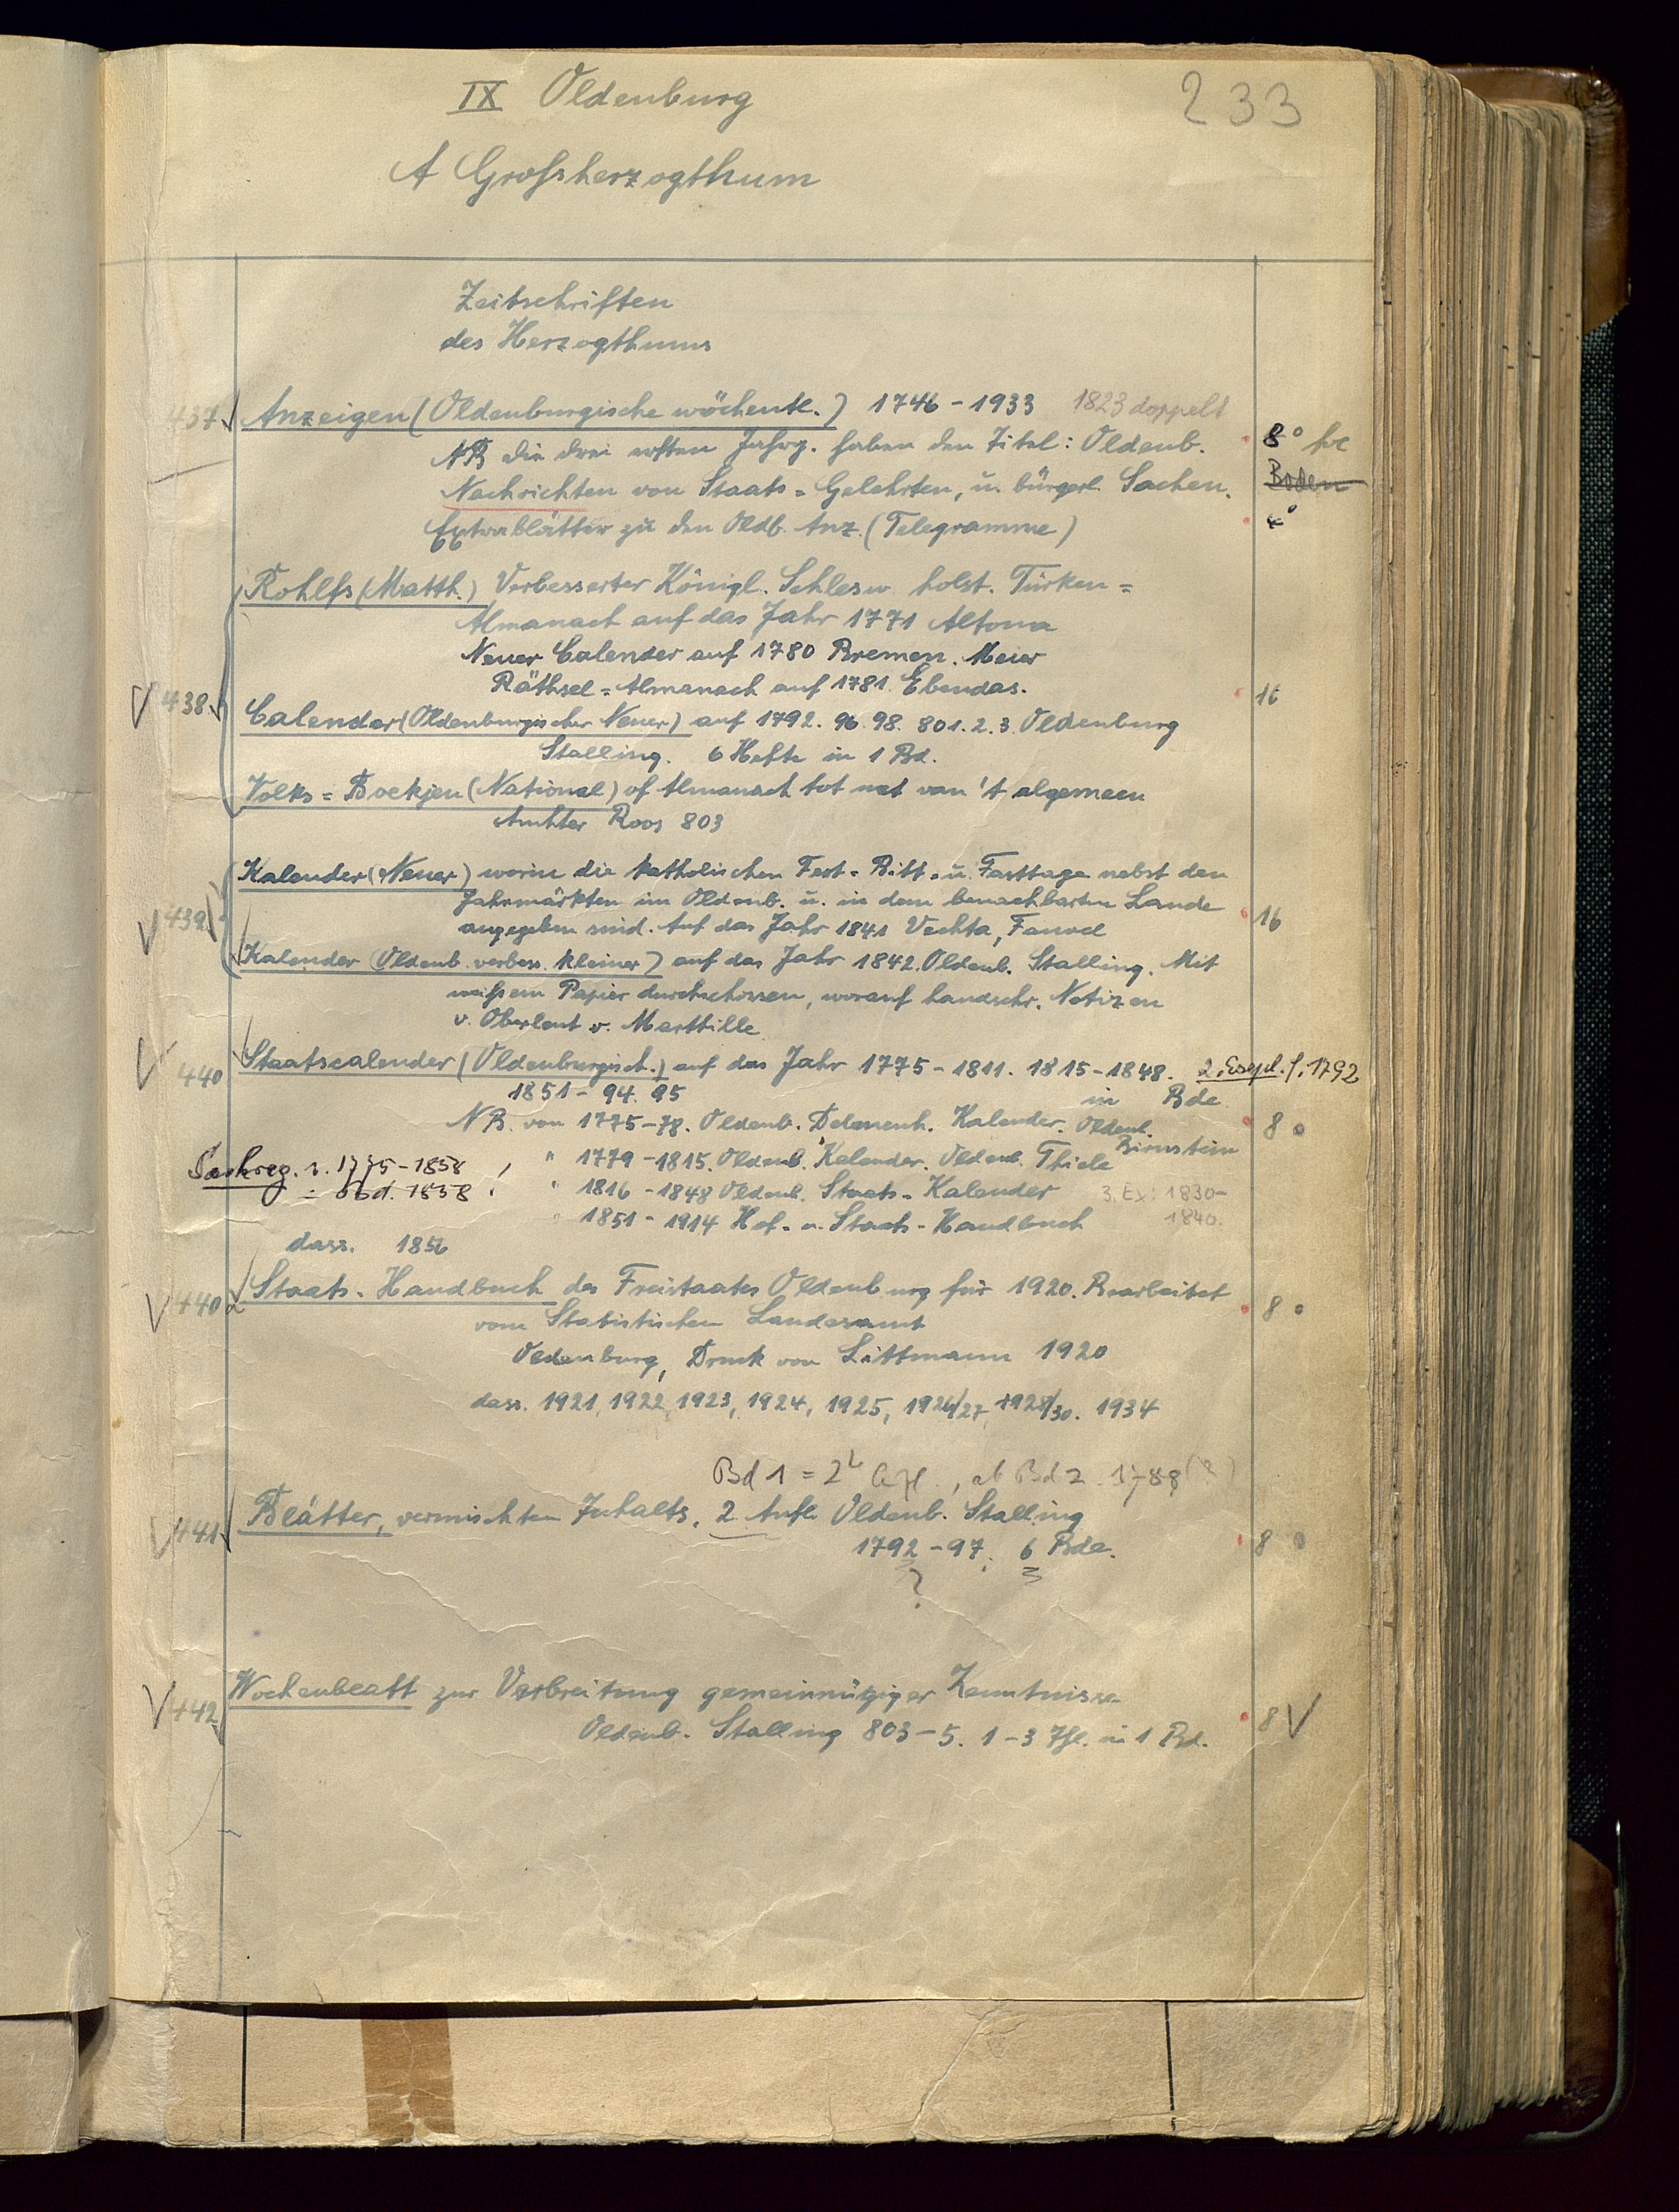 IX Oldenburg
233
A Grossherzogthum
Zeitschriften
des Herzogthums
437 Anzeigen (Oldenburgische wöchentl.) 1746-1933 1823 doppelt
NB die drei ersten Jahrg. haben den Titel: Oldenb. 8°
Nachrichten von Staats= Gelehrten, u. bürgerl. Sachen. Boden
Extrablätter zu den Oldb. Anz. (Telegramme) 4°
Rohlfs (Matth.) Verbesserter Königl. Schlesw. holst. Türken=
Almanach auf das Jahr 1771 Altona
Neuer Calender auf 1780 Bremen. Meier
Räthsel=Almanach auf 1781. Ebendas.
438 Calender (Oldenburgischer Neuer) auf 1792. 96. 98. 801. 2. 3. Oldenburg 16
Stalling. 6 Hefte in 1 Bd.
Volks=Boekjen (National) of Almanach tot nut van 't algemeen
Roos 803
Kalender (Neuer) worin die katholischen Fest= Bitt= u. Fasttage nebst den
439 Jahrmärkten im Oldenb. u. in dem benachbarten Lande 16
angegeben sind. Auf das Jahr 1841 Vechta, Fauvel
Kalender (Oldenb. verbess. kleiner) auf das Jahr 1842. Oldenb. Stalling. Mit
weißem Papier durchschossen, worauf handschr. Notizen
v. Oberleut v. Marttille
440 Staatscalender (Oldenburgisch.) auf das Jahr 1775-1811. 1815-1848. 2. Expl. f. 1792
1851-94. 95 in Bde.
NB. von 1775-78. Oldenb. Delmenh. Kalender. Oldenb. 8°
Bornstein
Sachreg. v. 1775-1858 " 1779-1815. Oldenb. Kalender. Oldenb. Thiele
1858 " 1816-1848 Oldenb. Staats-Kalender 3. Ex: 1830-
" 1851-1914 Hof- u. Staats-Handbuch 1840.
dass. 1856
440 a Staats-Handbuch des Freistaates Oldenburg für 1920. Bearbeitet 8°
vom Statistischen Landesamt
Oldenburg, Druck von Littmann 1920
dass. 1921, 1922, 1923, 1924, 1925, 1926/27, 1928/30. 1934
Bd 1 = 2te Afl., ab Bd 2. 1788 (?)
441 Blätter, vermischten Inhalts. 2. Aufl. Oldenb. Stalling
1792-97. 6 Bde. 8°
?
442 Wochenblatt zur Verbreitung gemeinnütziger Kenntnisse
Oldenb. Stalling 803-5. 1-3 Thl. in 1 Bd. 8